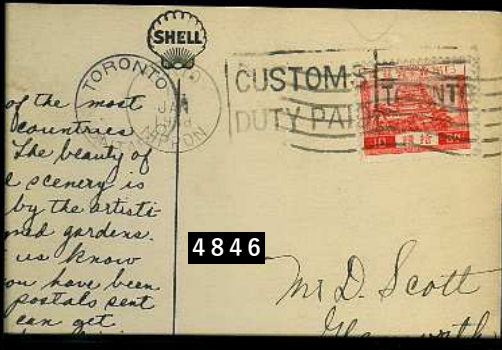 SHELL
TORONTO
JAN
NIPPON
CUSTOMS
DUTY PAID
TORONTO
10 拾 銭 10
of the most
countries
The beauty of
scenery is
by the artisti-
gardens.
us know
have been
postals sent
can get
4846
Mr D. Scott